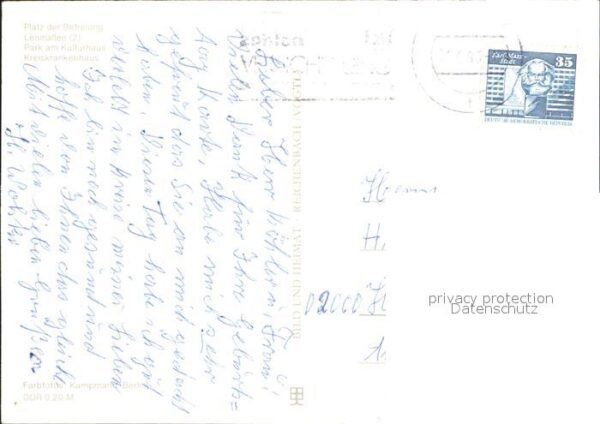 Platz der Befreiung
Lenmaßee (2)
Park am Kulturhaus
Kreiskrankenhaus
Lieber Herr Köhler u. Frau!
Vielen Dank für Ihre Geburts=
tag Karte, Habe mich sehr
gefreut das Sie an mich gedacht
haben. Diesen Tag habe ich gut
verlebt im Kreise meiner Lieben
Ich bin noch gesund und
hoffe von Ihnen das gleiche
Mit vielen lieben Grüßen
BILD UND HEIMAT REICHENBACH
Farbfotos: Kampmann, Berlin
DDR 0,20 M
Karl-Marx-
Stadt
35
DEUTSCHE DEMOKRATISCHE REPUBLIK
Herrn
H.
02000
privacy protection
Datenschutz